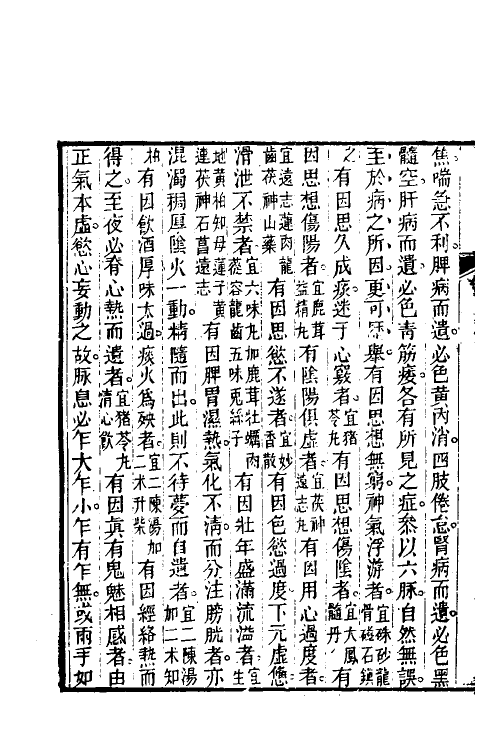 焦喘急不利脾病而遺必色黃肉消四肢倦怠腎病而遺必色黑
髓空肝病而遺必色靑筋痿各有所見之症叅以六脉自然無誤
至於病之所因更可歷舉有因思想無窮神氣浮游者宜硃砂龍骨磁石鎮
之有因思久成痰迷于心竅者宜猪苓丸有因思想傷陰者宜大鳳髓丹有
因思想傷陽者宜鹿茸益精丸有陰陽俱虛者宜茯神遠志丸有因用心過度者
宜遠志蓮肉龍齒茯神山藥有因思慾不遂者宜妙香散有因色慾過度下元虛憊
滑泄不禁者宜六味丸加鹿茸牡蠣肉蓯容龍齒五味兎絲子有因壯年盛滿流溢者宜生
地黃柏知母蓮子黃連茯神石菖遠志有因脾胃濕熱氣化不淸而分注膀胱者亦
混濁稠厚陰火一動精隨而出此則不待夢而自遺者宜二陳湯加二术知
柏有因飲酒厚味太過痰火爲殃者宜二陳湯加二术升柴有因經絡熱而
得之至夜必脊心熱而遺者宜猪苓丸淸心飲有因眞有鬼魅相感者由
正氣本虛慾心妄動之故脉息必乍大乍小乍有乍無或兩手如